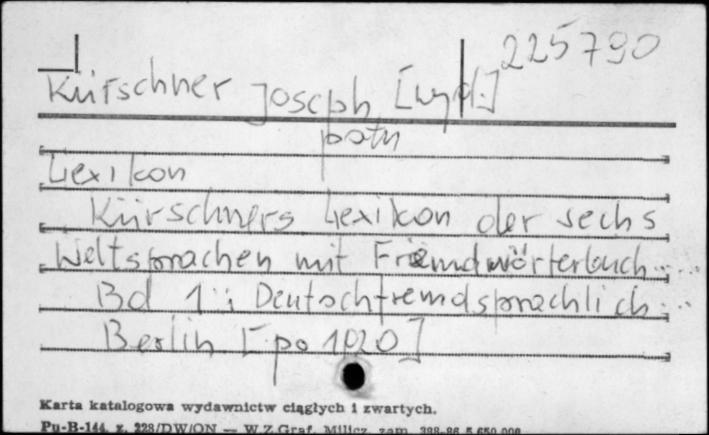 225790
Kürschner Joseph [wyd.]
patrz
Lexikon
Kürschners Lexikon der sechs
Weltsprachen mit Fremdwörterbuch...
Bd 1: Deutschfremdsprachlich...
Berlin [po 1920]
Karta katalogowa wydawnictw ciągłych i zwartych.
Pu-B-144, z. 228/DW/ON — W.Z.Graf. Milicz, zam.